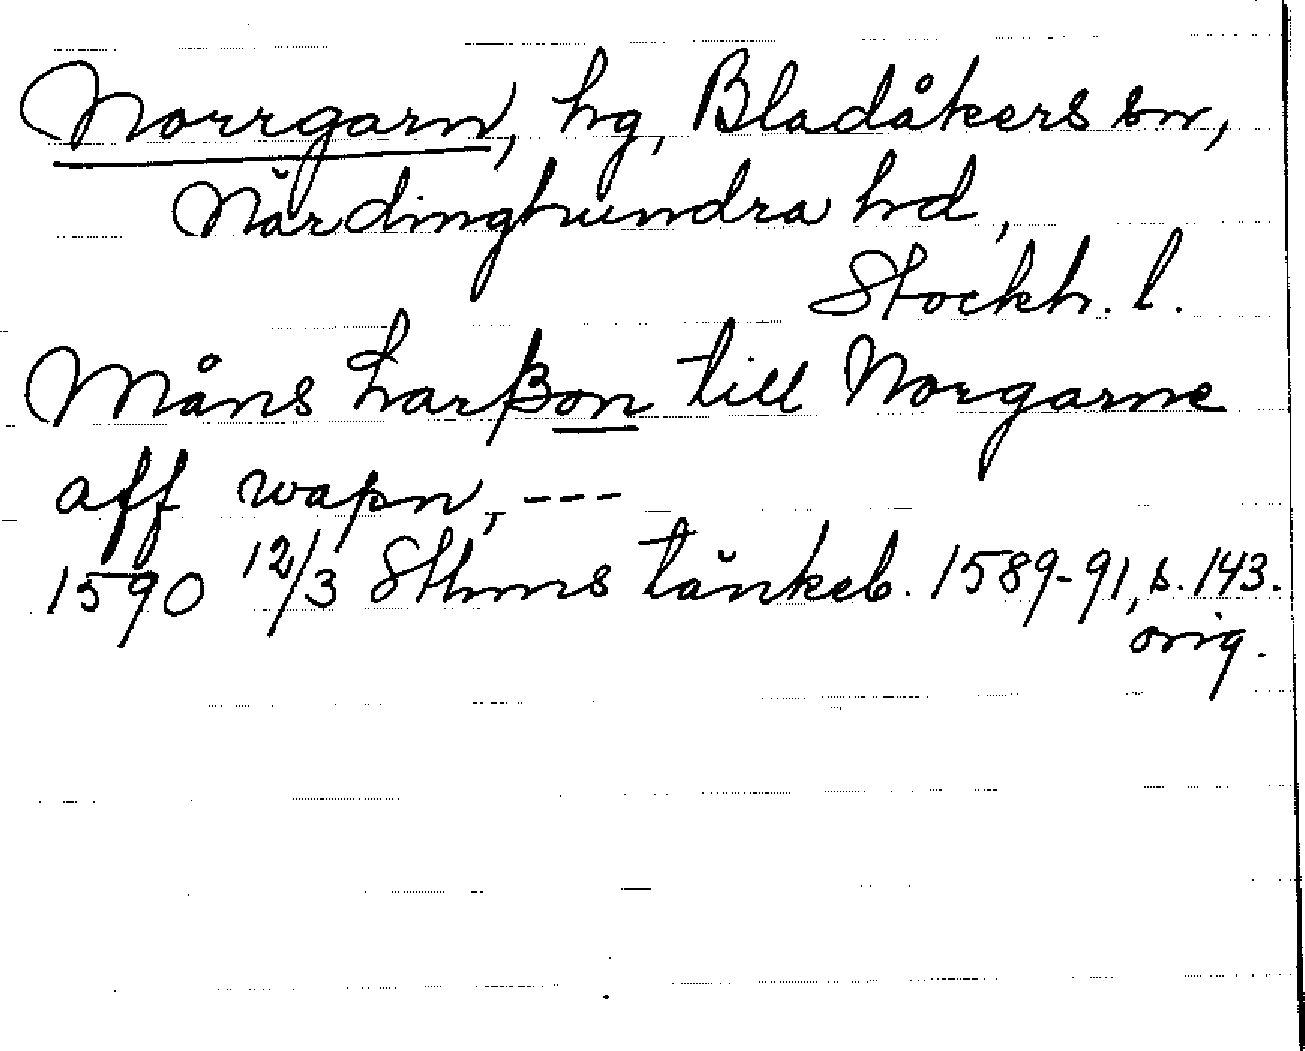 Norrgarn, hg, Bladåkers sn,
Närdinghundra hd,
Stockh. l.
Måns harßon till Norgarne
aff wapn, ---
1590 12/3 Sthms tänkeb. 1589-91, s. 143.
orig.